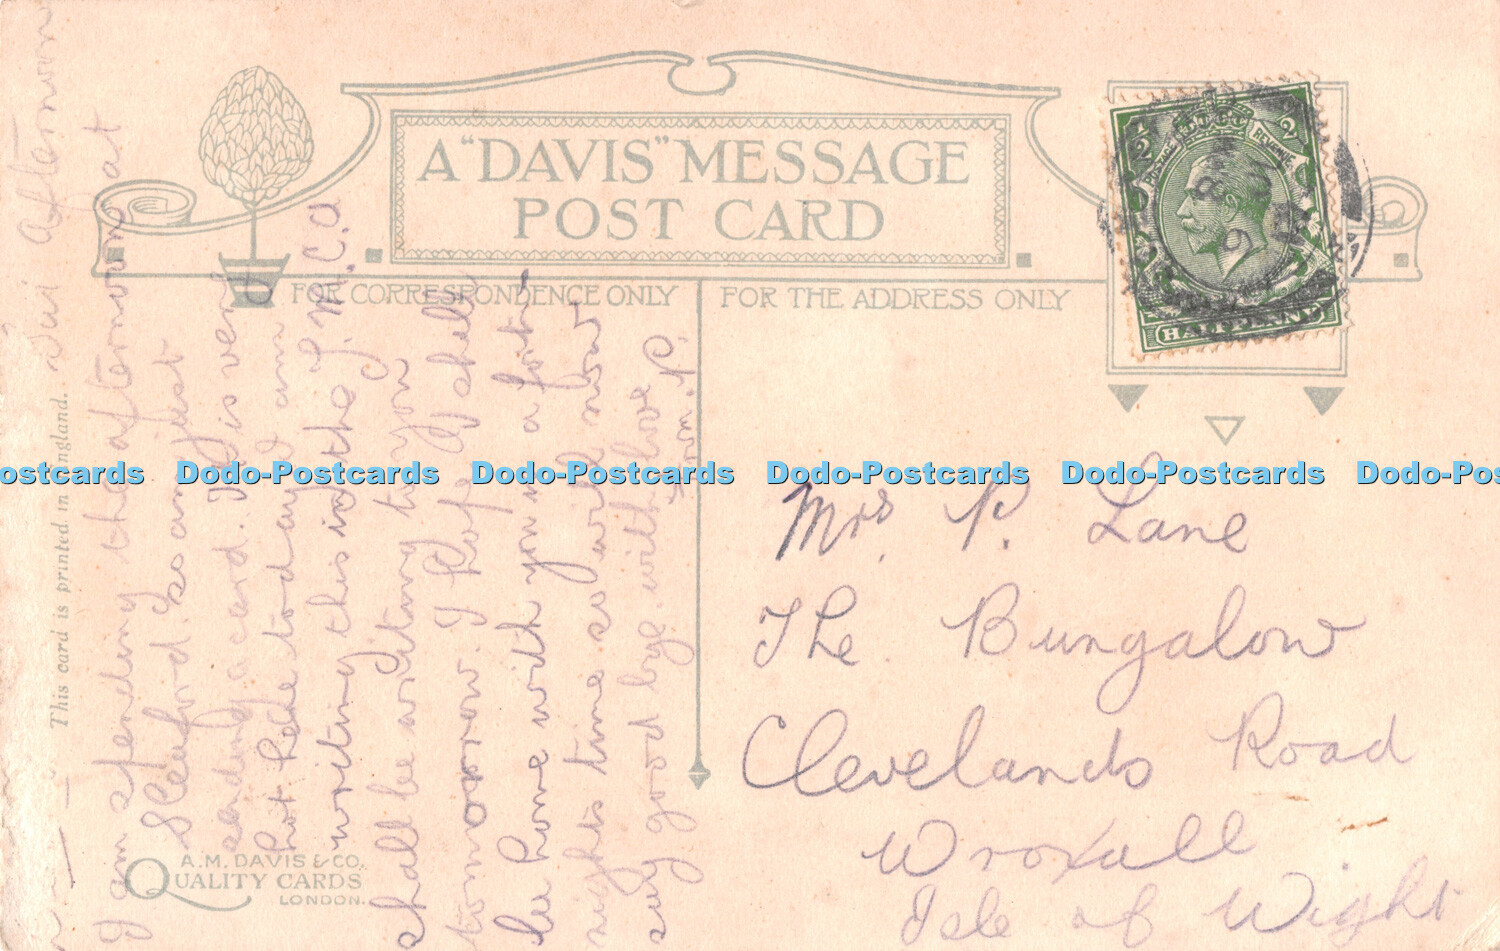 A "DAVIS" MESSAGE
POST CARD
FOR CORRESPONDENCE ONLY
FOR THE ADDRESS ONLY
POSTAGE
REVENUE
1/2
HALFPENNY
This card is printed in England.
Sat afternoon
I am spending the afternoon at
Sleaford. So am just
sending a card. It is very
hot here today I am
writing this in the Y.M.C.A
shall be writing to you
tomorrow. I hope I shall
be home with you in a fort-
nights time so will now
say good bye. with love
From. P.
Mrs. P. Lane
The Bungalow
Clevelands Road
Wroxall
Isle of Wight
A.M. DAVIS & CO.
QUALITY CARDS
LONDON.
Dodo-Postcards Dodo-Postcards Dodo-Postcards Dodo-Postcards Dodo-Postcards